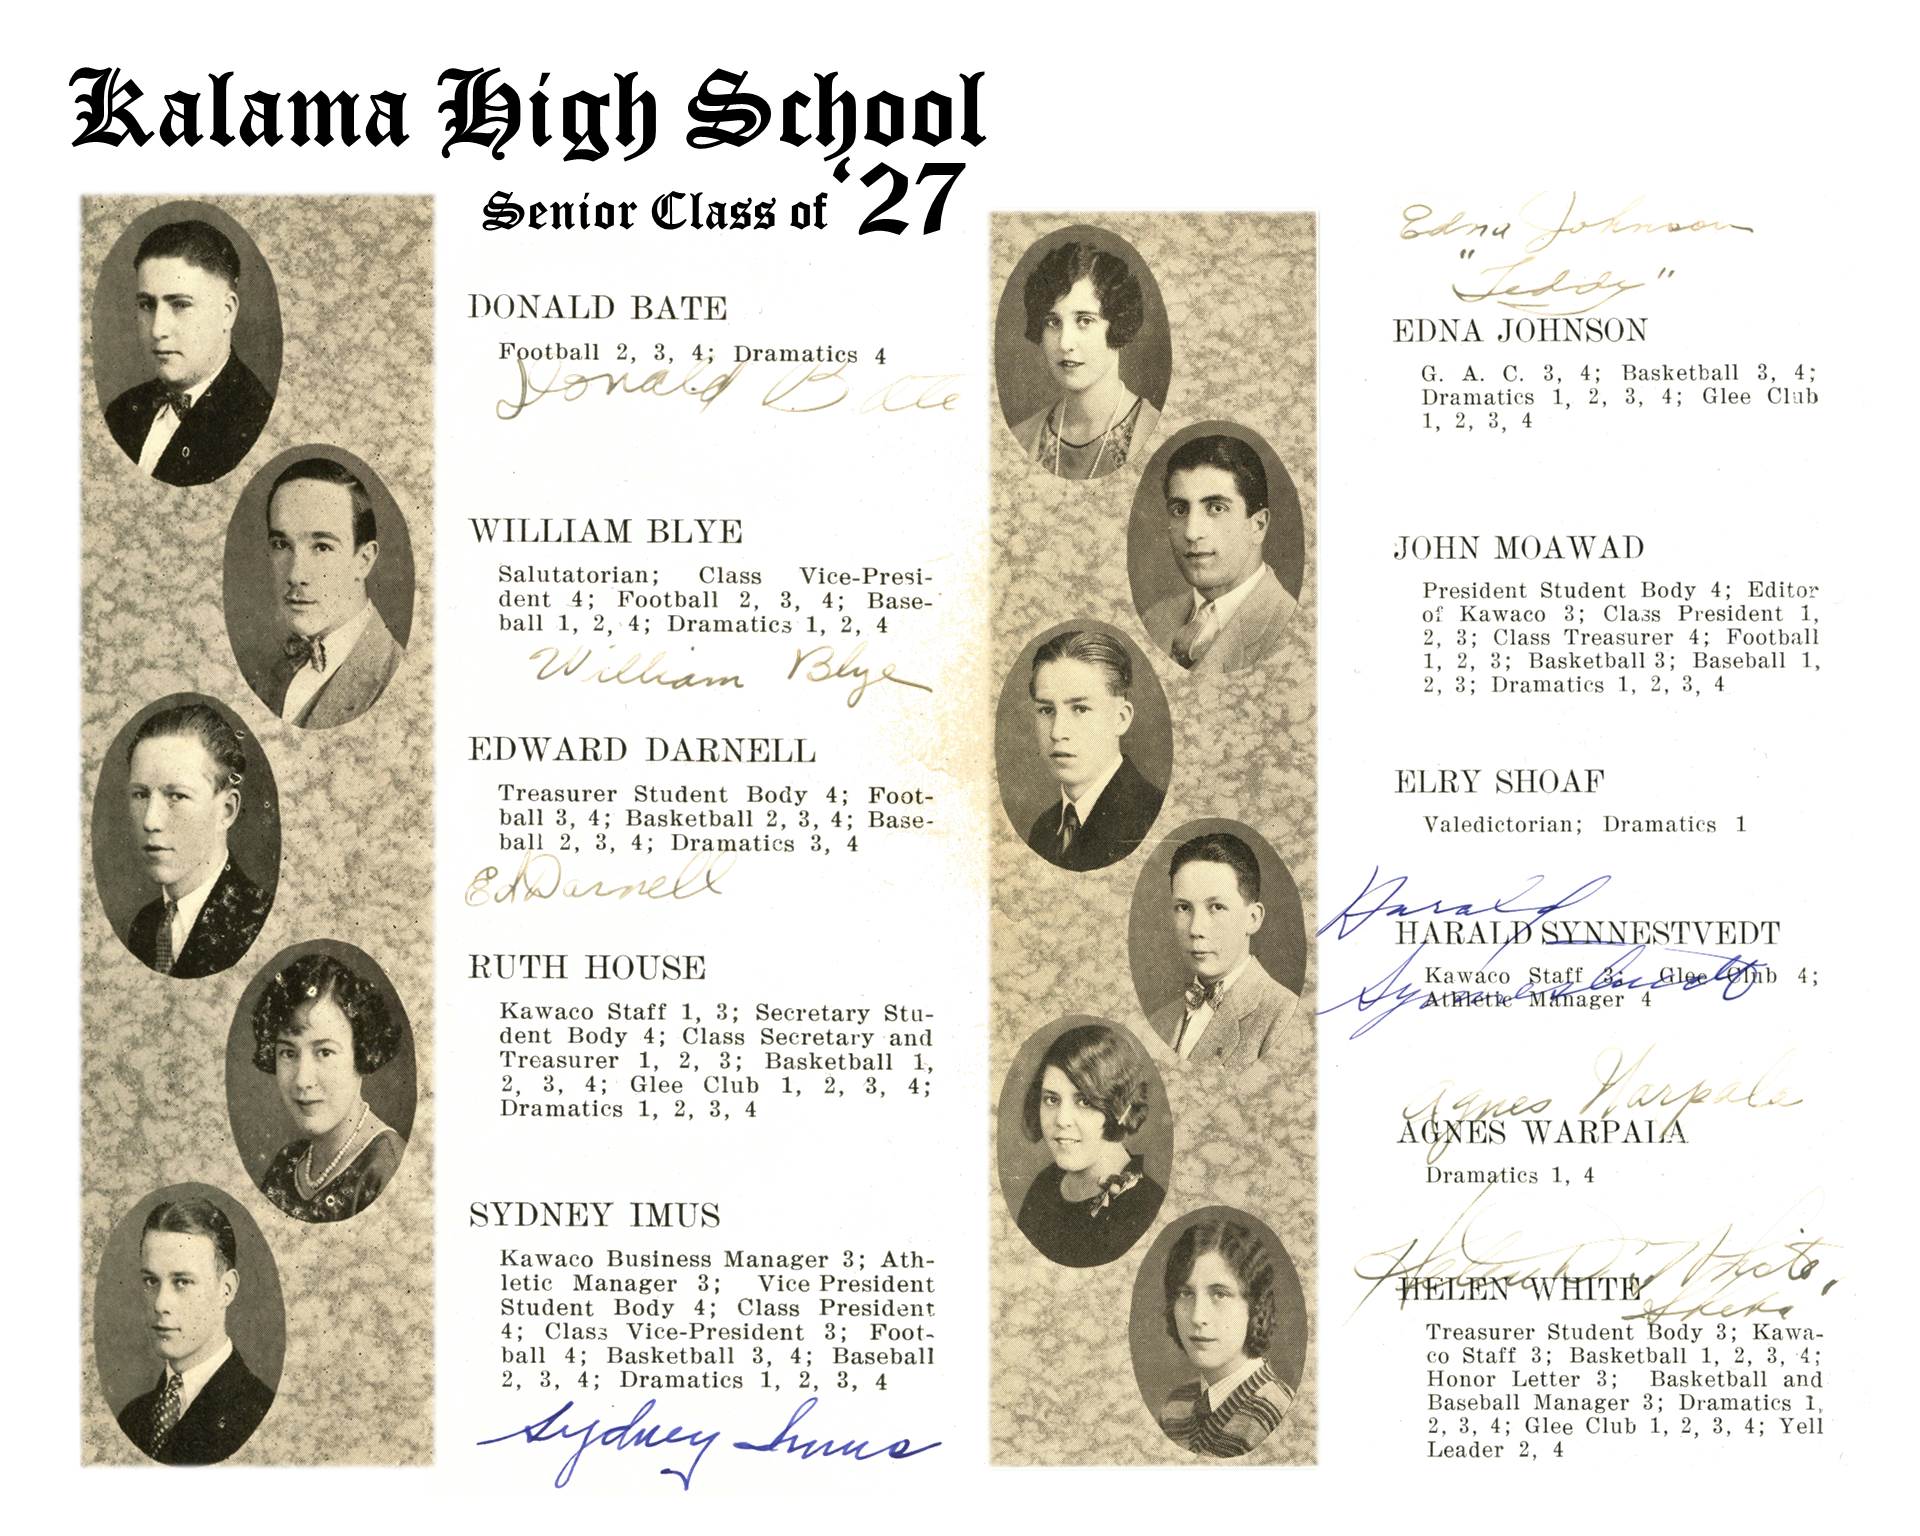 Kalama High School
Senior Class of '27
DONALD BATE
Football 2, 3, 4; Dramatics 4
Donald Bate
WILLIAM BLYE
Salutatorian; Class Vice-Presi-
dent 4; Football 2, 3, 4; Base-
ball 1, 2, 4; Dramatics 1, 2, 4
William Blye
EDWARD DARNELL
Treasurer Student Body 4; Foot-
ball 3, 4; Basketball 2, 3, 4; Base-
ball 2, 3, 4; Dramatics 3, 4
Ed Darnell
RUTH HOUSE
Kawaco Staff 1, 3; Secretary Stu-
dent Body 4; Class Secretary and
Treasurer 1, 2, 3; Basketball 1,
2, 3, 4; Glee Club 1, 2, 3, 4;
Dramatics 1, 2, 3, 4
SYDNEY IMUS
Kawaco Business Manager 3; Ath-
letic Manager 3; Vice President
Student Body 4; Class President
4; Class Vice-President 3; Foot-
ball 4; Basketball 3, 4; Baseball
2, 3, 4; Dramatics 1, 2, 3, 4
Sydney Imus
Edna Johnson
"Teddy"
EDNA JOHNSON
G. A. C. 3, 4; Basketball 3, 4;
Dramatics 1, 2, 3, 4; Glee Club
1, 2, 3, 4
JOHN MOAWAD
President Student Body 4; Editor
of Kawaco 3; Class President 1,
2, 3; Class Treasurer 4; Football
1, 2, 3; Basketball 3; Baseball 1,
2, 3; Dramatics 1, 2, 3, 4
ELRY SHOAF
Valedictorian; Dramatics 1
Harald
HARALD SYNNESTVEDT
Synnestvedt
Kawaco Staff 3; Glee Club 4;
Athletic Manager 4
Agnes Warpala
AGNES WARPALA
Dramatics 1, 4
Helen White
HELEN WHITE
Treasurer Student Body 3; Kawa-
co Staff 3; Basketball 1, 2, 3, 4;
Honor Letter 3; Basketball and
Baseball Manager 3; Dramatics 1,
2, 3, 4; Glee Club 1, 2, 3, 4; Yell
Leader 2, 4